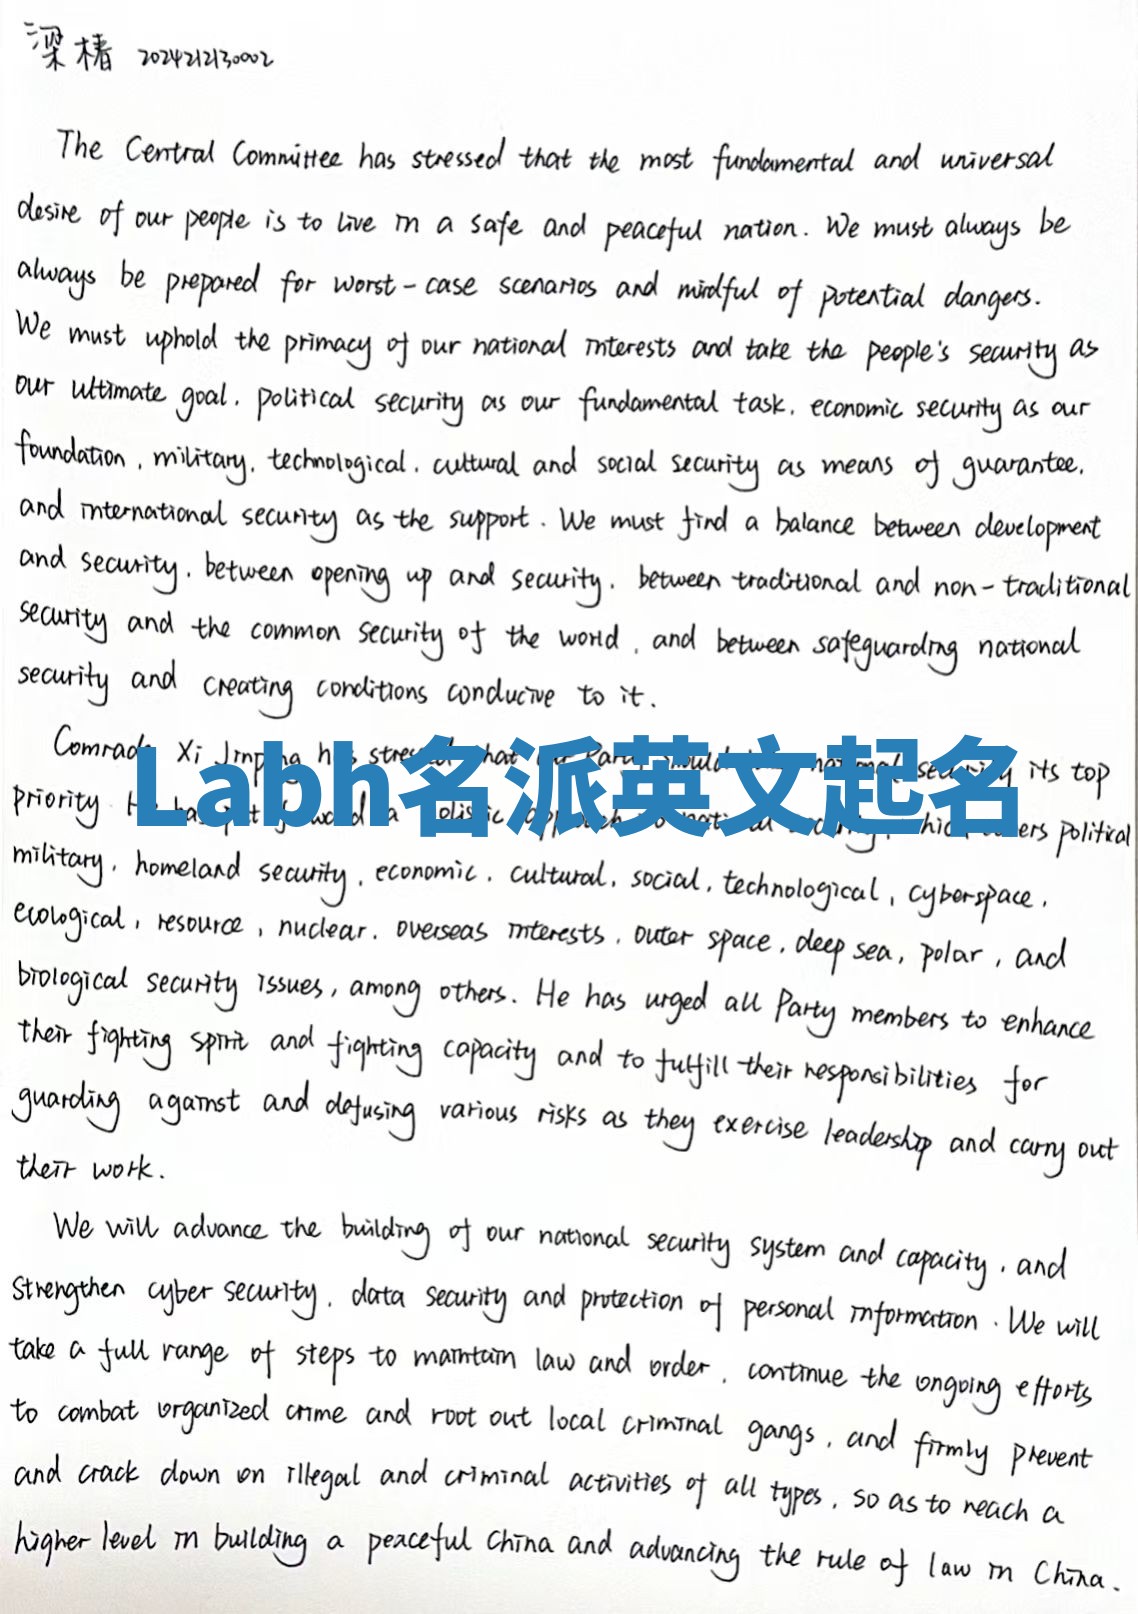 梁椿 2024212130002
The Central Committee has stressed that the most fundamental and universal
desire of our people is to live in a safe and peaceful nation. We must always be
always be prepared for worst-case scenarios and mindful of potential dangers.
We must uphold the primacy of our national interests and take the people's security as
our ultimate goal, political security as our fundamental task, economic security as our
foundation, military, technological, cultural and social security as means of guarantee,
and international security as the support. We must find a balance between development
and security, between opening up and security, between traditional and non-traditional
security and the common security of the world, and between safeguarding national
security and creating conditions conducive to it.
Comrade Xi Jinping has stressed that our Party should national security its top
Labh名派英文起名
priority He has put forward a holistic approach to national security, which covers political
military, homeland security, economic, cultural, social, technological, cyberspace,
ecological, resource, nuclear, overseas interests, outer space, deep sea, polar, and
biological security issues, among others. He has urged all Party members to enhance
their fighting spirit and fighting capacity and to fulfill their responsibilities for
guarding against and defusing various risks as they exercise leadership and carry out
their work.
We will advance the building of our national security system and capacity, and
strengthen cyber security, data security and protection of personal information. We will
take a full range of steps to maintain law and order, continue the ongoing efforts
to combat organized crime and root out local criminal gangs, and firmly prevent
and crack down on illegal and criminal activities of all types, so as to reach a
higher level in building a peaceful China and advancing the rule of law in China.